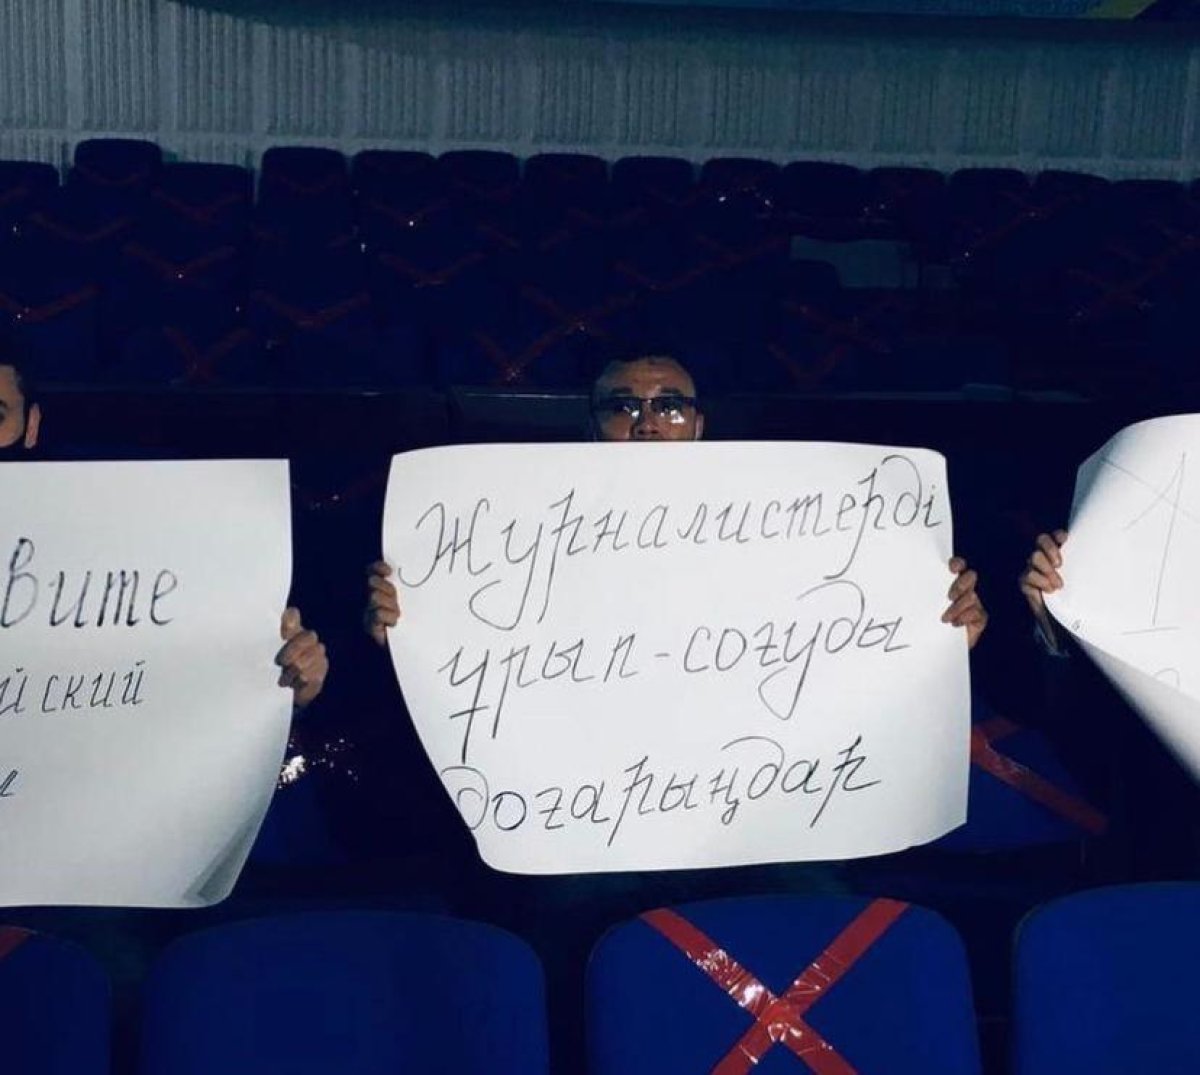 вите
йский
Журналистерді
ұрып-соғуды
доғарыңдар